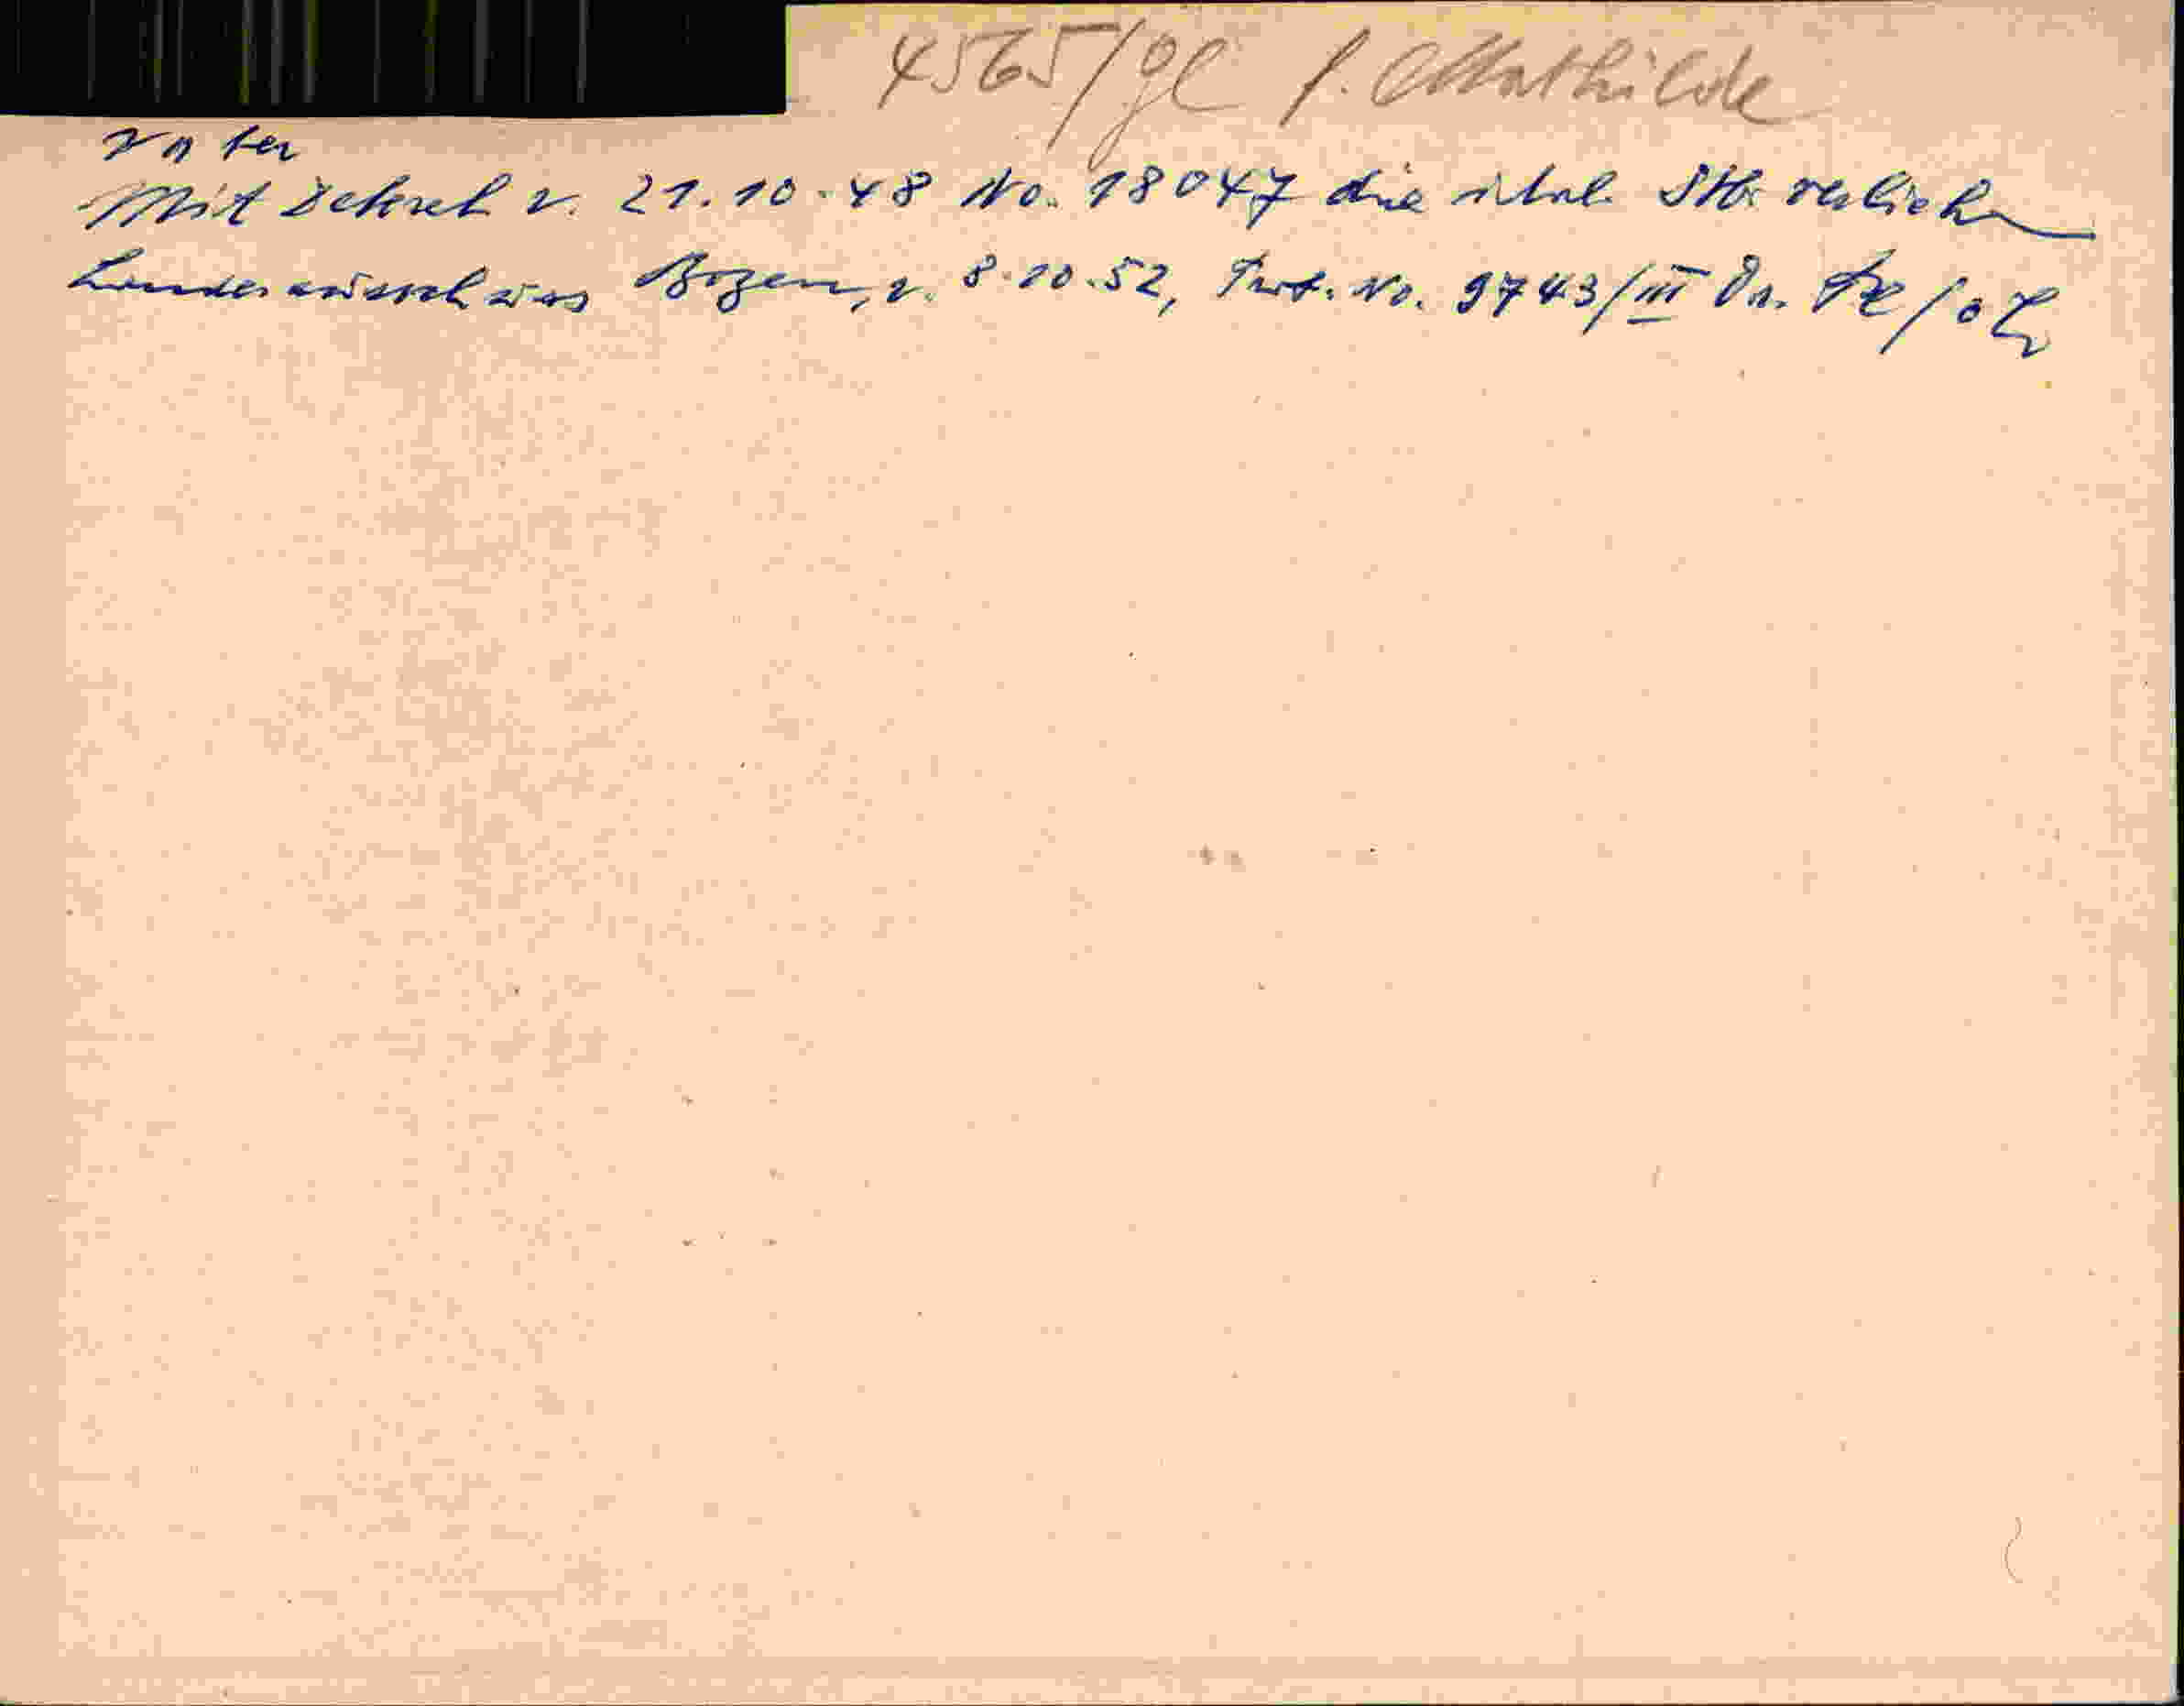 4565/gl f. Mathilde
Vater
Mit Dekret v. 21.10.48 No. 18047 die ital. Stb. verliehen
Landesausschuss Bozen, v. 8.10.52, Prot. No. 9743/III Dr.